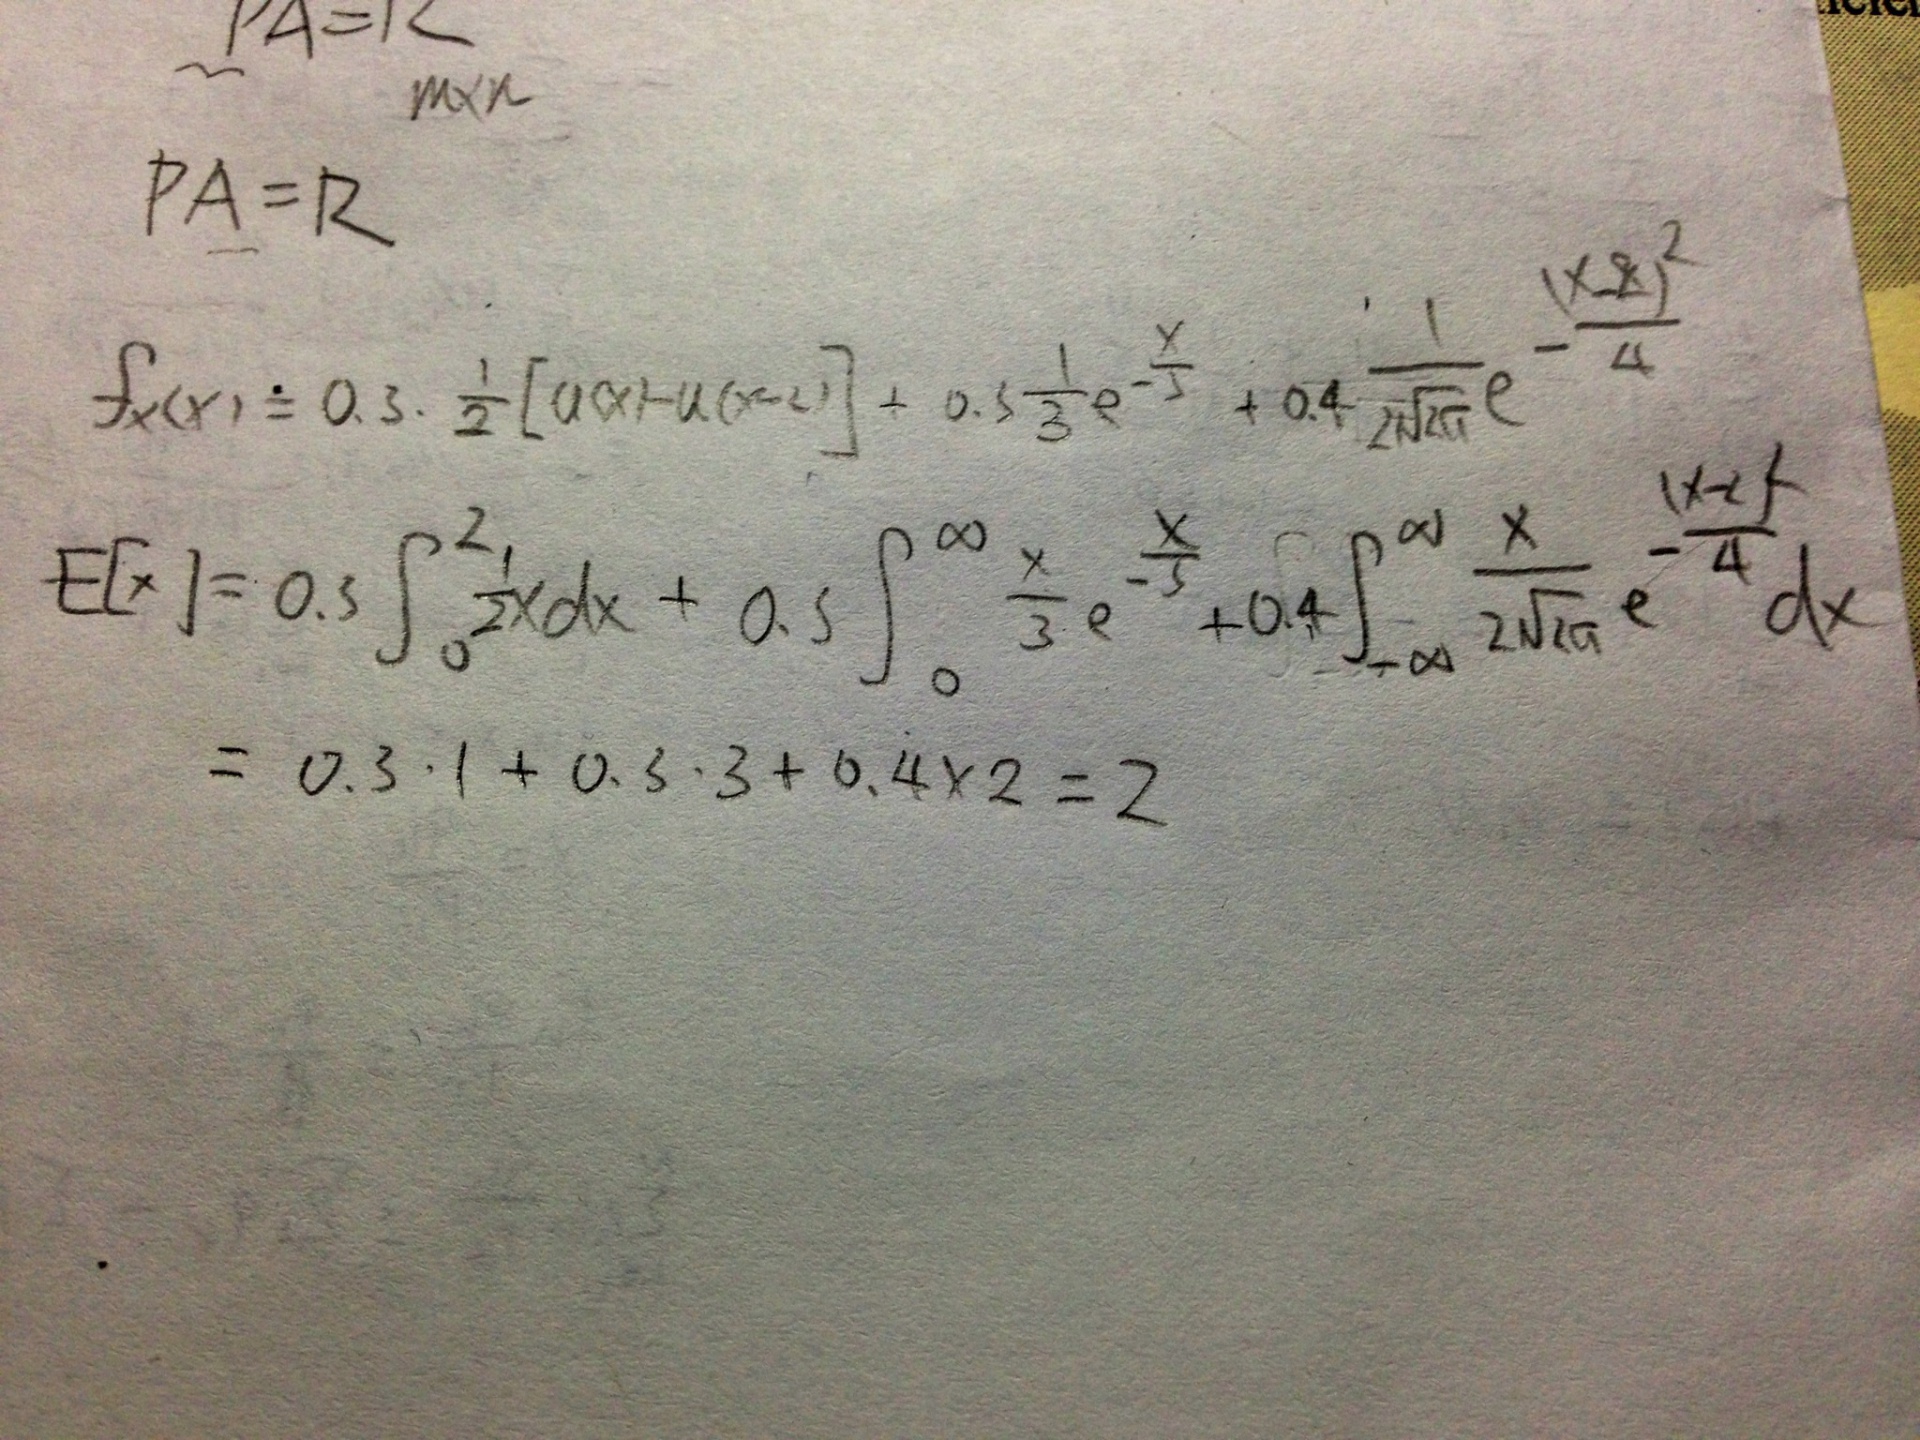 PA=R
m×n
PA=R
fx(x) = 0.3 · 1/2 [u(x)-u(x-2)] + 0.3 1/3 e^(-x/3) + 0.4 1/(2√2π) e^(-(x-2)²/4)
E[x] = 0.3 ∫_0^2 1/2 x dx + 0.3 ∫_0^∞ x/3 e^(-x/3) + 0.4 ∫_-∞^∞ x/(2√2π) e^(-(x-2)²/4) dx
= 0.3 · 1 + 0.3 · 3 + 0.4 × 2 = 2